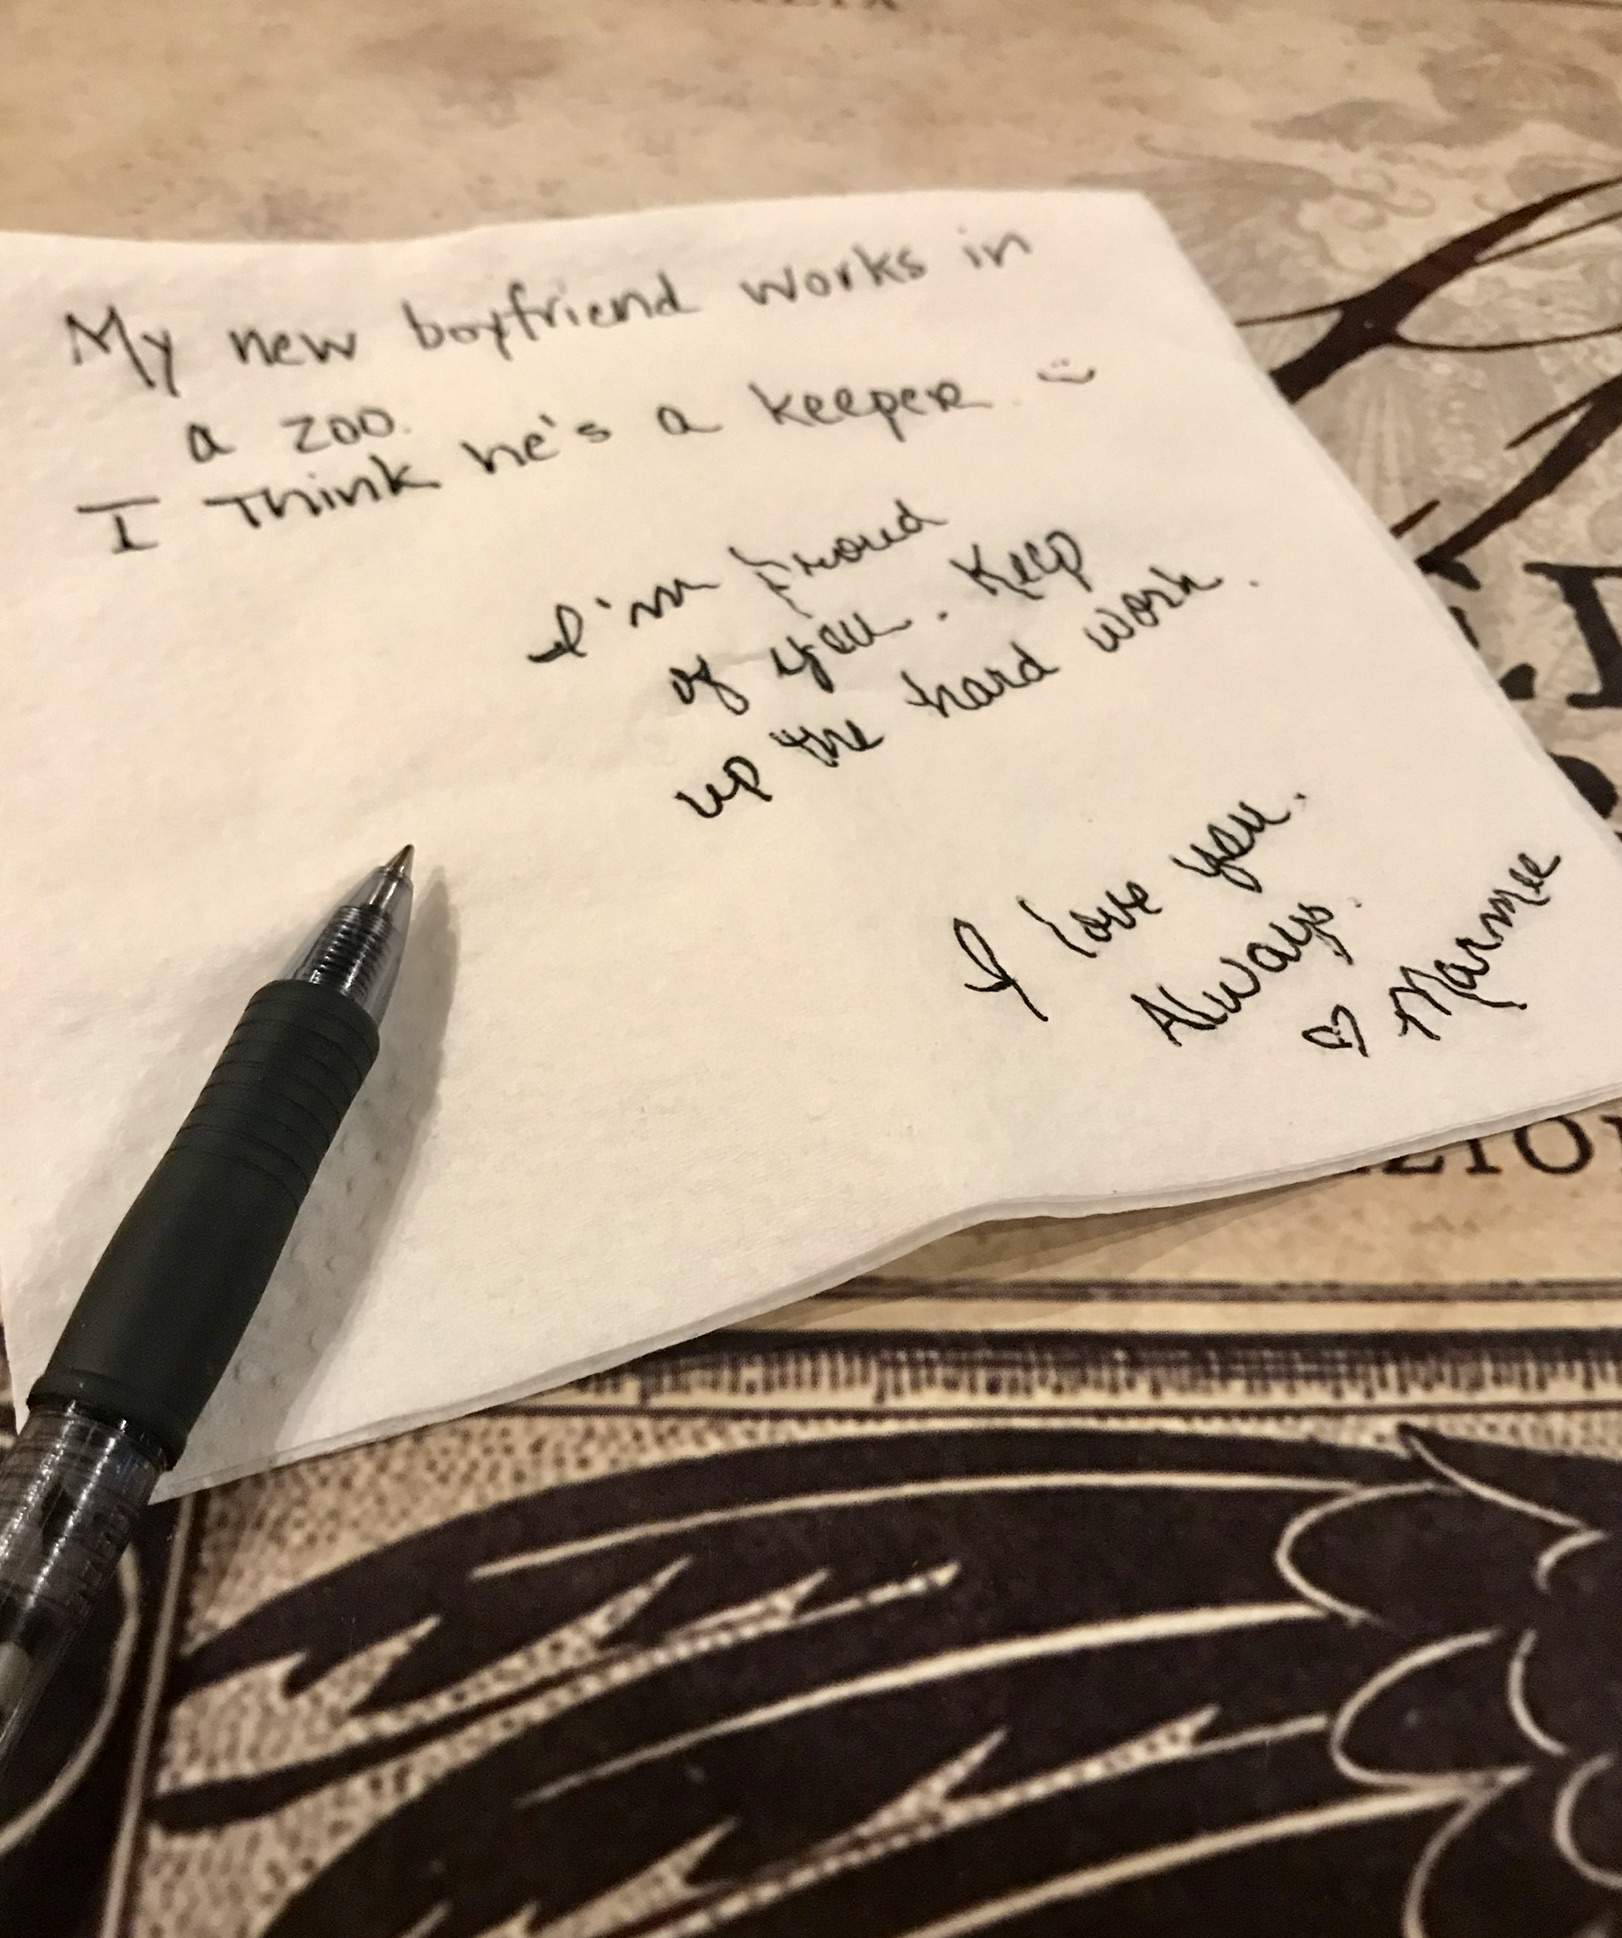 My new boyfriend works in
a zoo.
I Think he's a keeper. :)
I'm proud
of you. Keep
up the hard work.
I love you.
Always.
♡ Marmee